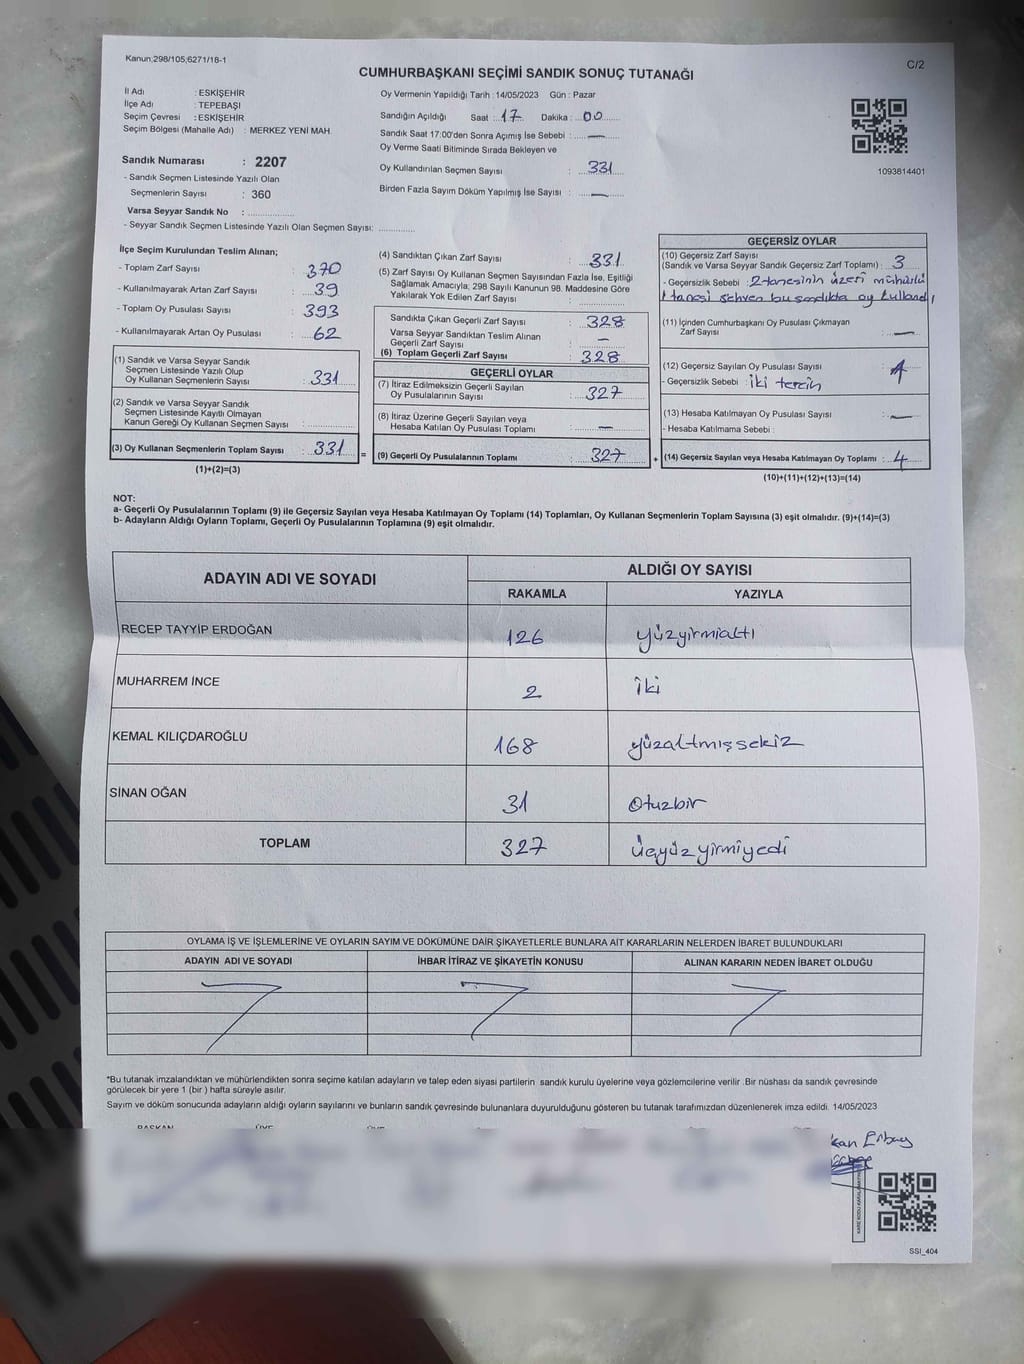 Kanun;298/105,6271/18-1
C/2
CUMHURBAŞKANI SEÇİMİ SANDIK SONUÇ TUTANAĞI
İl Adı : ESKİŞEHİR
İlçe Adı : TEPEBAŞI
Seçim Çevresi : ESKİŞEHİR
Seçim Bölgesi (Mahalle Adı) : MERKEZ YENİ MAH.
Oy Vermenin Yapıldığı Tarih : 14/05/2023 Gün : Pazar
Sandığın Açıldığı Saat : 17 Dakika : 00
Sandık Saat 17:00'den Sonra Açımış İse Sebebi : —
Oy Verme Saati Bitiminde Sırada Bekleyen ve
Oy Kullandırılan Seçmen Sayısı : 331
Birden Fazla Sayım Döküm Yapılmış İse Sayısı : —
1093814401
Sandık Numarası : 2207
- Sandık Seçmen Listesinde Yazılı Olan
Seçmenlerin Sayısı : 360
Varsa Seyyar Sandık No :
- Seyyar Sandık Seçmen Listesinde Yazılı Olan Seçmen Sayısı:
İlçe Seçim Kurulundan Teslim Alınan;
- Toplam Zarf Sayısı : 370
- Kullanılmayarak Artan Zarf Sayısı : 39
- Toplam Oy Pusulası Sayısı : 393
- Kullanılmayarak Artan Oy Pusulası : 62
(1) Sandık ve Varsa Seyyar Sandık
Seçmen Listesinde Yazılı Olup
Oy Kullanan Seçmenlerin Sayısı : 331
(2) Sandık ve Varsa Seyyar Sandık
Seçmen Listesinde Kayıtlı Olmayan
Kanun Gereği Oy Kullanan Seçmen Sayısı :
(3) Oy Kullanan Seçmenlerin Toplam Sayısı : 331
(1)+(2)=(3)
(4) Sandıktan Çıkan Zarf Sayısı : 331
(5) Zarf Sayısı Oy Kullanan Seçmen Sayısından Fazla İse, Eşitliği
Sağlamak Amacıyla; 298 Sayılı Kanunun 98. Maddesine Göre
Yakılarak Yok Edilen Zarf Sayısı :
Sandıkta Çıkan Geçerli Zarf Sayısı : 328
Varsa Seyyar Sandıktan Teslim Alınan
Geçerli Zarf Sayısı : —
(6) Toplam Geçerli Zarf Sayısı : 328
GEÇERLİ OYLAR
(7) İtiraz Edilmeksizin Geçerli Sayılan
Oy Pusulalarının Sayısı : 327
(8) İtiraz Üzerine Geçerli Sayılan veya
Hesaba Katılan Oy Pusulası Toplamı : —
= (9) Geçerli Oy Pusulalarının Toplamı : 327
GEÇERSİZ OYLAR
(10) Geçersiz Zarf Sayısı
(Sandık ve Varsa Seyyar Sandık Geçersiz Zarf Toplamı) : 3
- Geçersizlik Sebebi : 2 tanesinin üzeri mühürlü
1 tanesi sehven bu sandıkta oy kullandı
(11) İçinden Cumhurbaşkanı Oy Pusulası Çıkmayan
Zarf Sayısı : —
(12) Geçersiz Sayılan Oy Pusulası Sayısı : 1
- Geçersizlik Sebebi : iki tercih
(13) Hesaba Katılmayan Oy Pusulası Sayısı : —
- Hesaba Katılmama Sebebi :
+ (14) Geçersiz Sayılan veya Hesaba Katılmayan Oy Toplamı : 4
(10)+(11)+(12)+(13)=(14)
NOT:
a- Geçerli Oy Pusulalarının Toplamı (9) ile Geçersiz Sayılan veya Hesaba Katılmayan Oy Toplamı (14) Toplamları, Oy Kullanan Seçmenlerin Toplam Sayısına (3) eşit olmalıdır. (9)+(14)=(3)
b- Adayların Aldığı Oyların Toplamı, Geçerli Oy Pusulalarının Toplamına (9) eşit olmalıdır.
ADAYIN ADI VE SOYADI ALDIĞI OY SAYISI
RAKAMLA YAZIYLA
RECEP TAYYİP ERDOĞAN 126 yüzyirmialtı
MUHARREM İNCE 2 iki
KEMAL KILIÇDAROĞLU 168 yüzaltmışsekiz
SİNAN OĞAN 31 Otuzbir
TOPLAM 327 üçyüzyirmiyedi
OYLAMA İŞ VE İŞLEMLERİNE VE OYLARIN SAYIM VE DÖKÜMÜNE DAİR ŞİKAYETLERLE BUNLARA AİT KARARLARIN NELERDEN İBARET BULUNDUKLARI
ADAYIN ADI VE SOYADI İHBAR İTİRAZ VE ŞİKAYETİN KONUSU ALINAN KARARIN NEDEN İBARET OLDUĞU
*Bu tutanak imzalandıktan ve mühürlendikten sonra seçime katılan adayların ve talep eden siyasi partilerin sandık kurulu üyelerine veya gözlemcilerine verilir .Bir nüshası da sandık çevresinde
görülecek bir yere 1 (bir ) hafta süreyle asılır.
Sayım ve döküm sonucunda adayların aldığı oyların sayılarını ve bunların sandık çevresinde bulunanlara duyurulduğunu gösteren bu tutanak tarafımızdan düzenlenerek imza edildi. 14/05/2023
BAŞKAN ÜYE ÜYE
kan Erbay
SSI_404